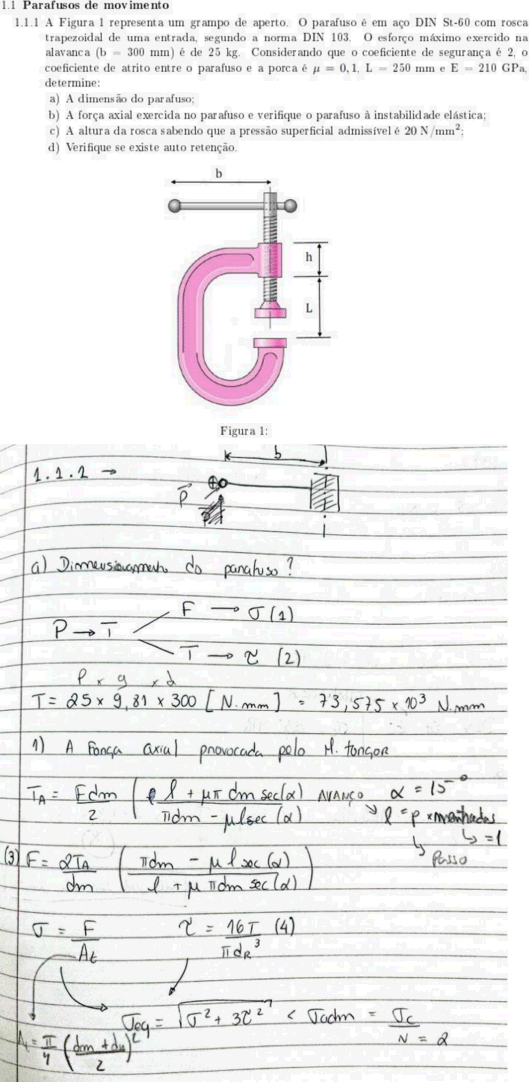 1.1 Parafusos de movimento
1.1.1 A Figura 1 representa um grampo de aperto. O parafuso é em aço DIN St-60 com rosca
trapezoidal de uma entrada, segundo a norma DIN 103. O esforço máximo exercido na
alavanca (b = 300 mm) é de 25 kg. Considerando que o coeficiente de segurança é 2, o
coeficiente de atrito entre o parafuso e a porca é μ = 0,1, L = 250 mm e E = 210 GPa,
determine:
a) A dimensão do parafuso;
b) A força axial exercida no parafuso e verifique o parafuso à instabilidade elástica;
c) A altura da rosca sabendo que a pressão superficial admissível é 20 N/mm²;
d) Verifique se existe auto retenção.
b
h
L
Figura 1:
1.1.1 →
b
P
a) Dimensionamento do parafuso?
F → σ (1)
P → T
T → τ (2)
P x g x d
T = 25 x 9,81 x 300 [N.mm] = 73,575 x 10³ N.mm
1) A Força axial provocada pelo M. torsor
T_A = Fdm/2 (l + μπ dm sec(α) / πdm - μl sec(α)) AVANÇO α = 15°
l = p x entradas
↳ = 1
Passo
(3) F = 2T_A/dm (πdm - μl sec(α) / l + μπdm sec(α))
σ = F/A_t τ = 16T/πd_R³ (4)
σ_eq = √(σ² + 3τ²) < σ_adm = σ_c/N = 2
A_t = π/4 (dm + d_R / 2)²